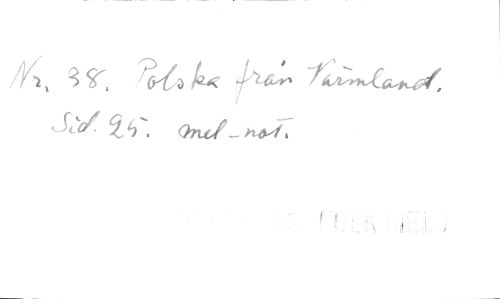 Nr. 38. Polska från Värmland.
Sid. 25. mel-not.